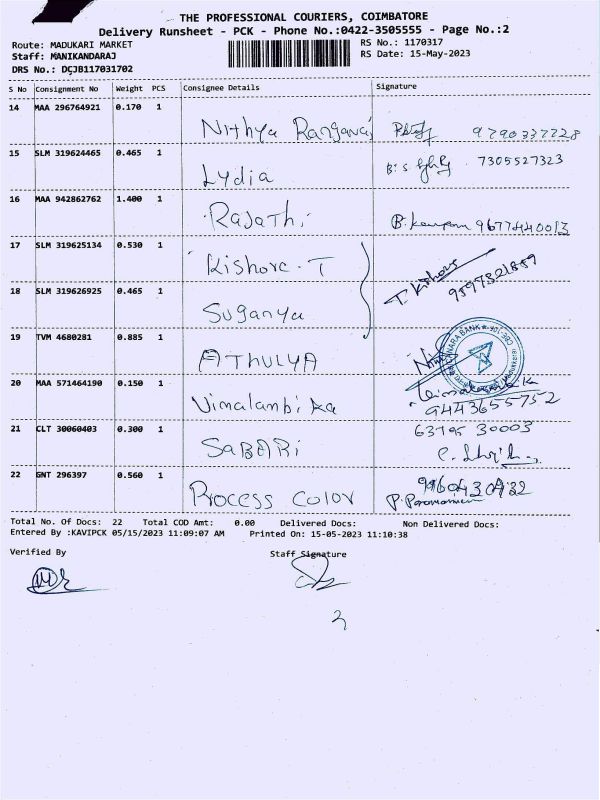 THE PROFESSIONAL COURIERS, COIMBATORE
Delivery Runsheet - PCK - Phone No.:0422-3505555 - Page No.:2
Route: MADUKARI MARKET
Staff: MANIKANDARAJ
DRS No.: DCJB117031702
RS No.: 1170317
RS Date: 15-May-2023
S No Consignment No Weight PCS Consignee Details Signature
14 MAA 296764921 0.170 1 Nithya 9790337728
15 SLM 319624465 0.465 1 Lydia 7305527323
16 MAA 942862762 1.400 1 Rajathi 9677440013
17 SLM 319625134 0.530 1 Kishore. T T. Kishore
18 SLM 319626925 0.465 1 Suganya
19 TVM 4680281 0.885 1 ATHULYA CANARA BANK
20 MAA 571464190 0.150 1 Vimalambika 9443655752
21 CLT 30060403 0.300 1 SABARI 63795 30003
22 GNT 296397 0.560 1 Process Color
Total No. Of Docs: 22 Total COD Amt: 0.00 Delivered Docs: Non Delivered Docs:
Entered By :KAVIPCK 05/15/2023 11:09:07 AM Printed On: 15-05-2023 11:10:38
Verified By Staff Signature